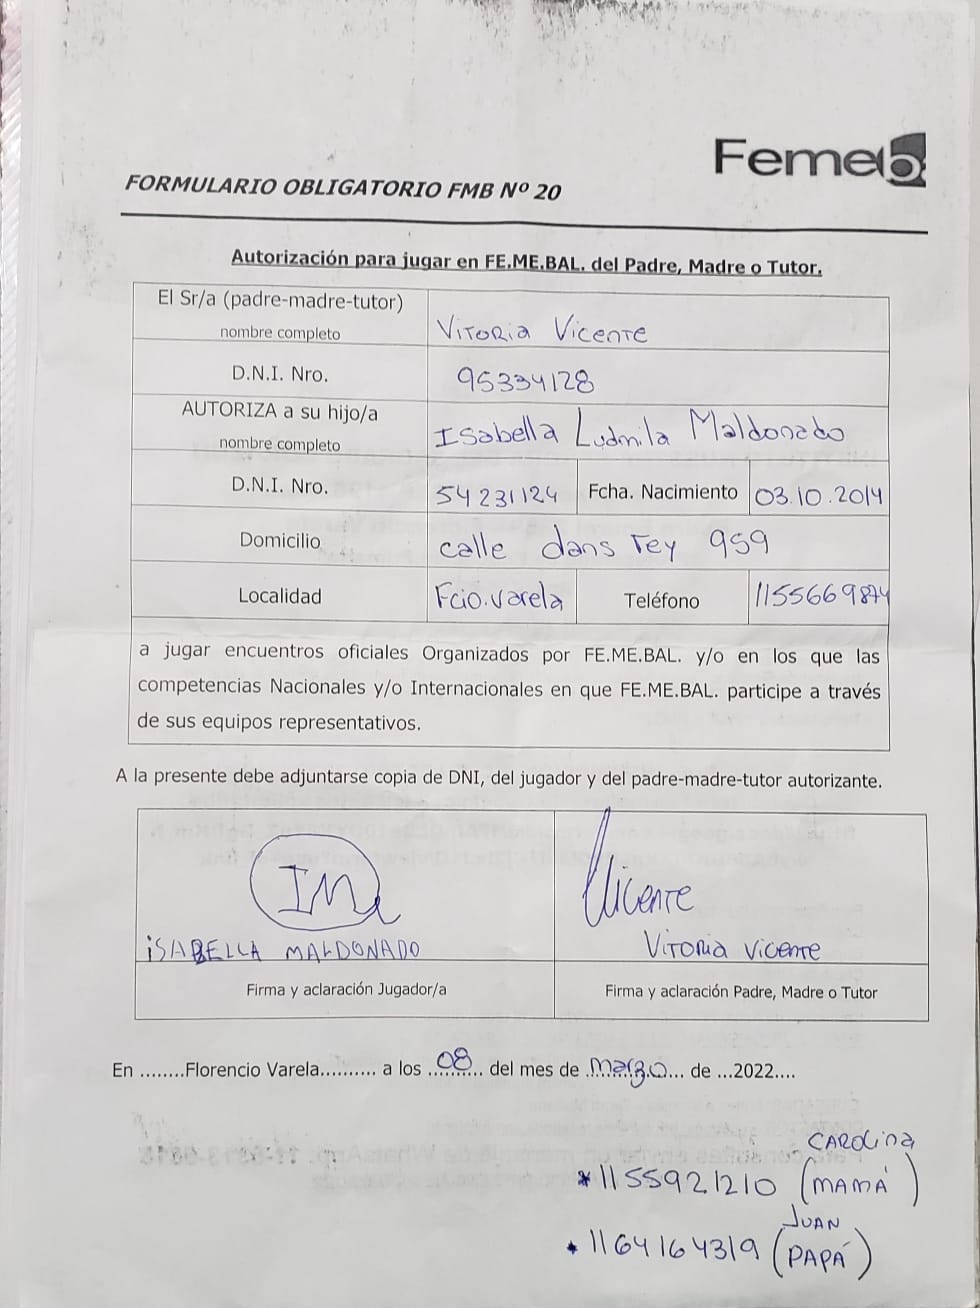 Femeb
FORMULARIO OBLIGATORIO FMB Nº 20
Autorización para jugar en FE.ME.BAL. del Padre, Madre o Tutor.
El Sr/a (padre-madre-tutor)
nombre completo
Vitoria Vicente
D.N.I. Nro.
95334128
AUTORIZA a su hijo/a
nombre completo
Isabella Ludmila Maldonado
D.N.I. Nro.
54231124
Fcha. Nacimiento
03.10.2014
Domicilio
calle dans rey 959
Localidad
Fcio.varela
Teléfono
1155669874
a jugar encuentros oficiales Organizados por FE.ME.BAL. y/o en los que las
competencias Nacionales y/o Internacionales en que FE.ME.BAL. participe a través
de sus equipos representativos.
A la presente debe adjuntarse copia de DNI, del jugador y del padre-madre-tutor autorizante.
IM
Vicente
ISABELLA MALDONADO
Vitoria Vicente
Firma y aclaración Jugador/a
Firma y aclaración Padre, Madre o Tutor
En ........Florencio Varela.......... a los ..08.. del mes de ..marzo... de ...2022....
CAROLina
*1155921210 (MAMÁ)
JUAN
*1164164319 (PAPÁ)